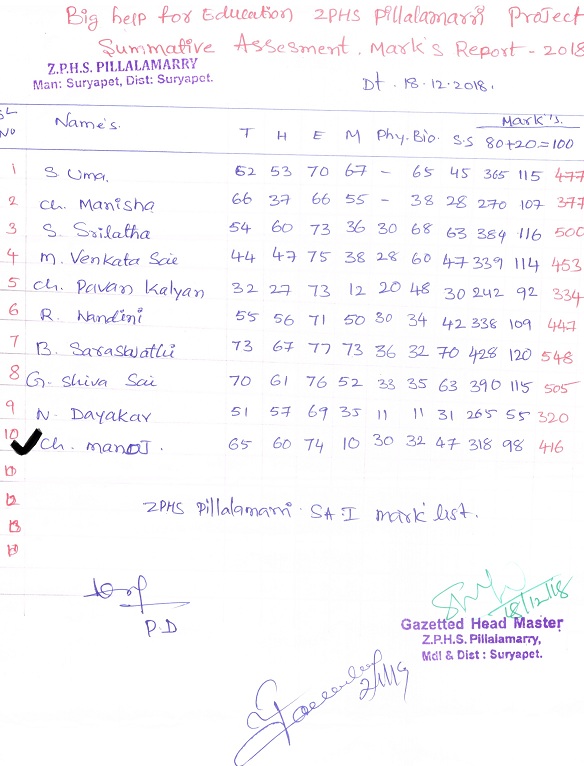 Big help for Education ZPHS Pillalamarri Project
Summative Assesment. Mark's Report - 2018
Z.P.H.S. PILLALAMARRY
Man: Suryapet, Dist: Suryapet.
Dt. 18.12.2018.
SL No Name's. T H E M Phy. Bio. S.S Mark's. 80+20=100
1 S. Uma. 52 53 70 67 - 65 45 365 115 477
2 Ch. Manisha 66 37 66 55 - 38 28 270 107 377
3 S. Srilatha 54 60 73 36 30 68 63 384 116 500
4 M. Venkata Sai 44 47 75 38 28 60 47 339 114 453
5 Ch. Pavan Kalyan 32 27 73 12 20 48 30 242 92 334
6 R. Nandini 55 56 71 50 30 34 42 338 109 447
7 B. Saraswathi 73 67 77 73 36 32 70 428 120 548
8 G. Shiva Sai 70 61 76 52 33 35 63 390 115 505
9 N. Dayakar 51 57 69 35 11 11 31 265 55 320
10 Ch. manoJ. 65 60 74 10 30 32 47 318 98 416
11
12
13
ZPHS Pillalamarri SA I mark list.
P.D
18/12/18
Gazetted Head Master
Z.P.H.S. Pillalamarry,
Mdl & Dist : Suryapet.